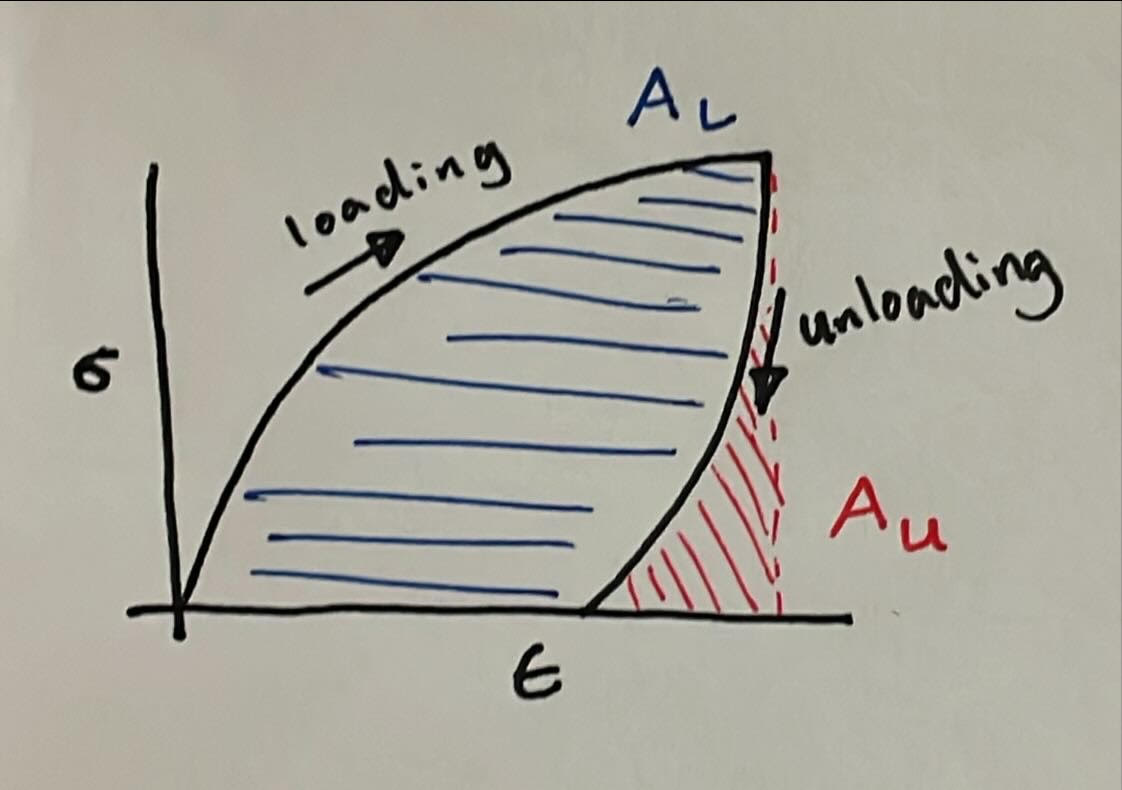 A_L
loading
unloading
σ
A_u
ϵ